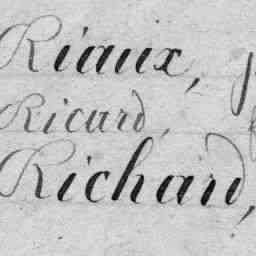 Riaux,
Ricard,
Richard,